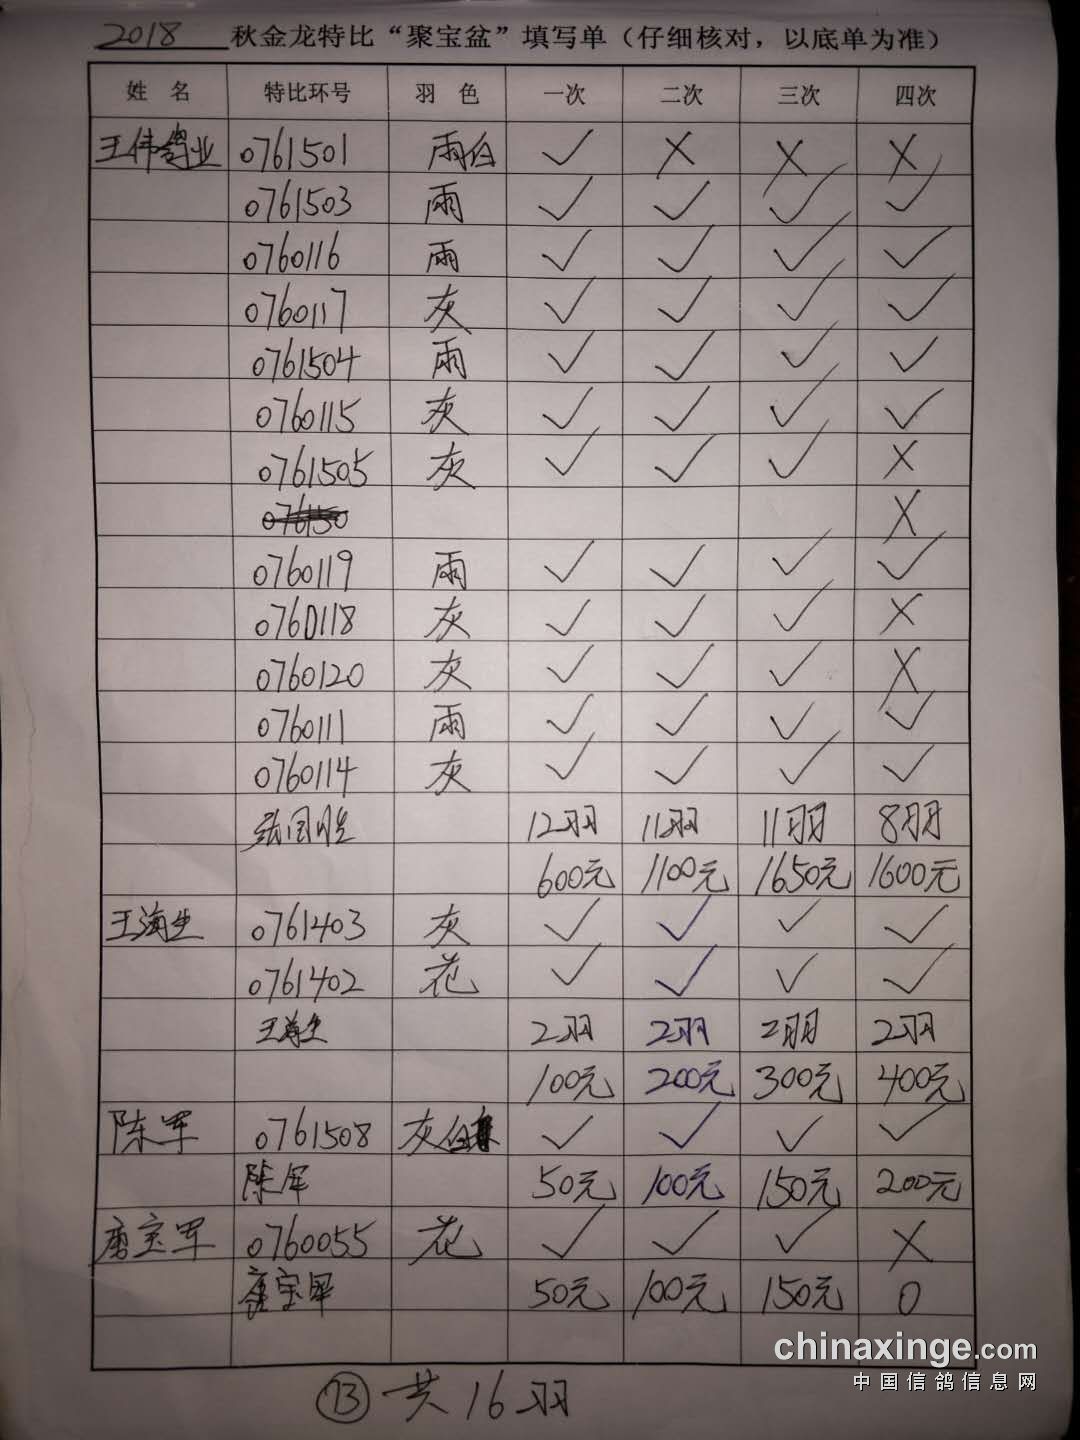 2018 秋金龙特比“聚宝盆”填写单（仔细核对，以底单为准）
姓 名 特比环号 羽 色 一次 二次 三次 四次
王伟鸽业 0761501 雨白 ✓ X X X
0761503 雨 ✓ ✓ ✓ ✓
0760116 雨 ✓ ✓ ✓ ✓
0760117 灰 ✓ ✓ ✓ ✓
0761504 雨 ✓ ✓ ✓ ✓
0760115 灰 ✓ ✓ ✓ ✓
0761505 灰 ✓ ✓ ✓ X
076150 X
0760119 雨 ✓ ✓ ✓ ✓
0760118 灰 ✓ ✓ ✓ X
0760120 灰 ✓ ✓ ✓ X
0760111 雨 ✓ ✓ ✓ ✓
0760114 灰 ✓ ✓ ✓ ✓
张国胜 12羽 11羽 11羽 8羽
600元 1100元 1650元 1600元
王海生 0761403 灰 ✓ ✓ ✓ ✓
0761402 花 ✓ ✓ ✓ ✓
王海生 2羽 2羽 2羽 2羽
100元 200元 300元 400元
陈军 0761508 灰白 ✓ ✓ ✓ ✓
陈军 50元 100元 150元 200元
唐宝军 0760055 花 ✓ ✓ ✓ X
唐宝军 50元 100元 150元 0
73 共16羽
chinaxinge.com
中国信鸽信息网